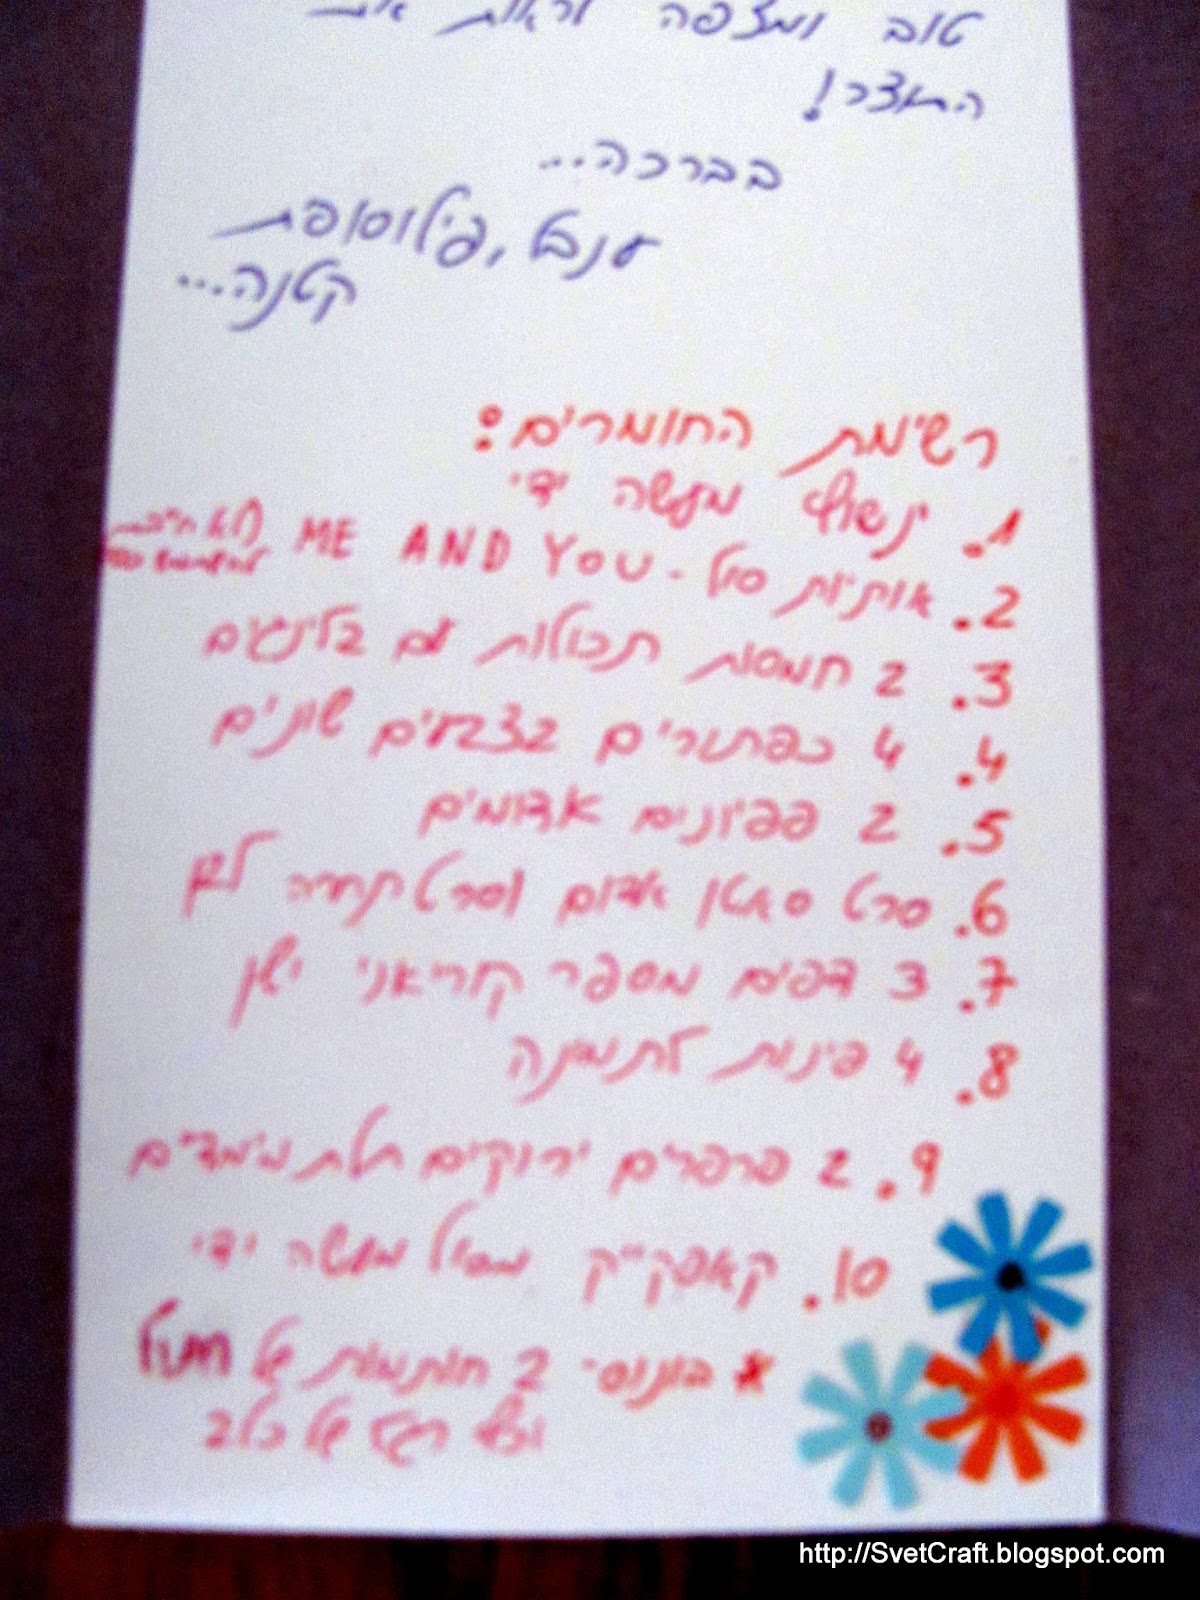 טוב ומצפה לראות את
התוצר!
בברכה...
ענבל, פילוסופית
קטנה...
רשימת החומרים:
1. ינשוף מעשה ידי
2. אותיות סול - ME AND YOU (לא חייב
3. 2 חמסות תכולות עם בלינגים
4. 4 כפתורים בצבעים שונים
5. 2 פפיונים אדומים
6. סרט סאטן אדום וסרט תחרה לבן
7. 3 דפים מספר קוריאני ישן
8. 4 פינות לתמונה
9. 2 פרפרים ירוקים תלת מימדיים
10. קאפקייק מסול מעשה ידי
* בונוס - 2 חותמות של חתול
וכף רגל של כלב
http://SvetCraft.blogspot.com